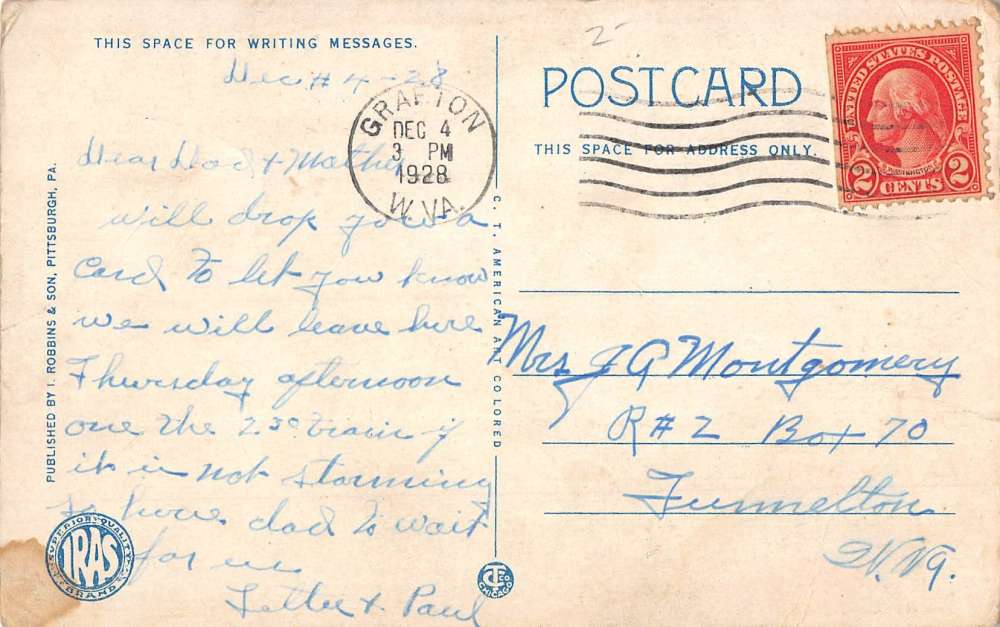 THIS SPACE FOR WRITING MESSAGES.
Dec # 4 - 28
Dear Dad & Mother
will drop you a
card to let you know
we will leave here
Thursday afternoon
one the 2 30 train if
it is not storming
so have dad to wait
for us
& Paul
PUBLISHED BY I. ROBBINS & SON, PITTSBURGH, PA.
SUPERIOR QUALITY
IRAS
BRAND
C. T. AMERICAN ART COLORED
CT CO
CHICAGO
GRAFTON
DEC 4
3 PM
1928
W.VA.
2
POSTCARD
THIS SPACE FOR ADDRESS ONLY.
UNITED STATES POSTAGE
2 CENTS 2
Mrs J A Montgomery
R # 2 Box 70
Tunnelton
W. Va.